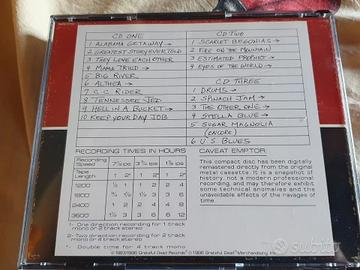 CD ONE
1 ALABAMA GETAWAY →
2 GREATEST STORY EVER TOLD
3 THEY LOVE EACH OTHER
4 MAMA TRIED →
5 BIG RIVER
6 ALTHEA →
7 C.C. RIDER
8 TENNESSEE JED
9 HELL IN A BUCKET →
10 KEEP YOUR DAY JOB
CD TWO
1 SCARLET BEGONIAS →
2 FIRE ON THE MOUNTAIN
3 ESTIMATED PROPHET →
4 EYES OF THE WORLD →
CD THREE
1 DRUMS →
2 SPINACH JAM →
3 THE OTHER ONE →
4 STELLA BLUE →
5 SUGAR MAGNOLIA
(ENCORE)
6 U.S. BLUES
RECORDING TIMES IN HOURS
Recording Speed 7½ IPS 3¾ IPS 1⅞ IPS
Tape Length 1 2 1 2 1 2
1200
1800
2400
3600
1- One direction recording for 1 track mono or 2 track stereo
2- Two direction recording for 2 track mono or 4 track stereo
Double for 4 track mono
CAVEAT EMPTOR
This compact disc has been digitally
remastered directly from the original
metal cassette. It is a snapshot of
history, not a modern professional
recording, and may therefore exhibit
some technical anomalies and the
unavoidable effects of the ravages of
time.
Grateful Dead Records
1996 Grateful Dead Merchandising, Inc.
subito